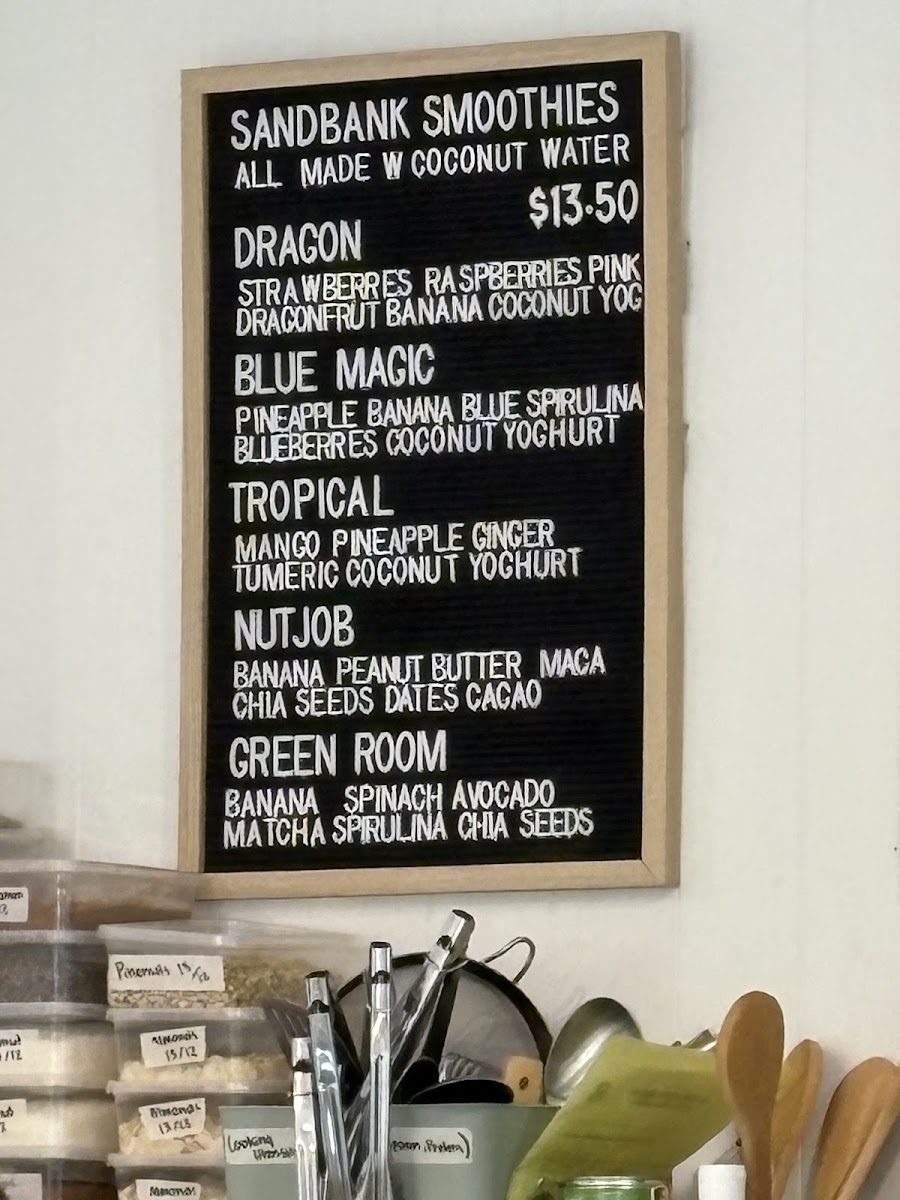 SANDBANK SMOOTHIES
ALL MADE W COCONUT WATER
$13.50
DRAGON
STRAWBERRES RASPBERRIES PINK
DRAGONFRUT BANANA COCONUT YOG
BLUE MAGIC
PINEAPPLE BANANA BLUE SPIRULINA
BLUEBERRES COCONUT YOGHURT
TROPICAL
MANGO PINEAPPLE GINGER
TUMERIC COCONUT YOGHURT
NUTJOB
BANANA PEANUT BUTTER MACA
CHIA SEEDS DATES CACAO
GREEN ROOM
BANANA SPINACH AVOCADO
MATCHA SPIRULINA CHIA SEEDS
15/12
13/12